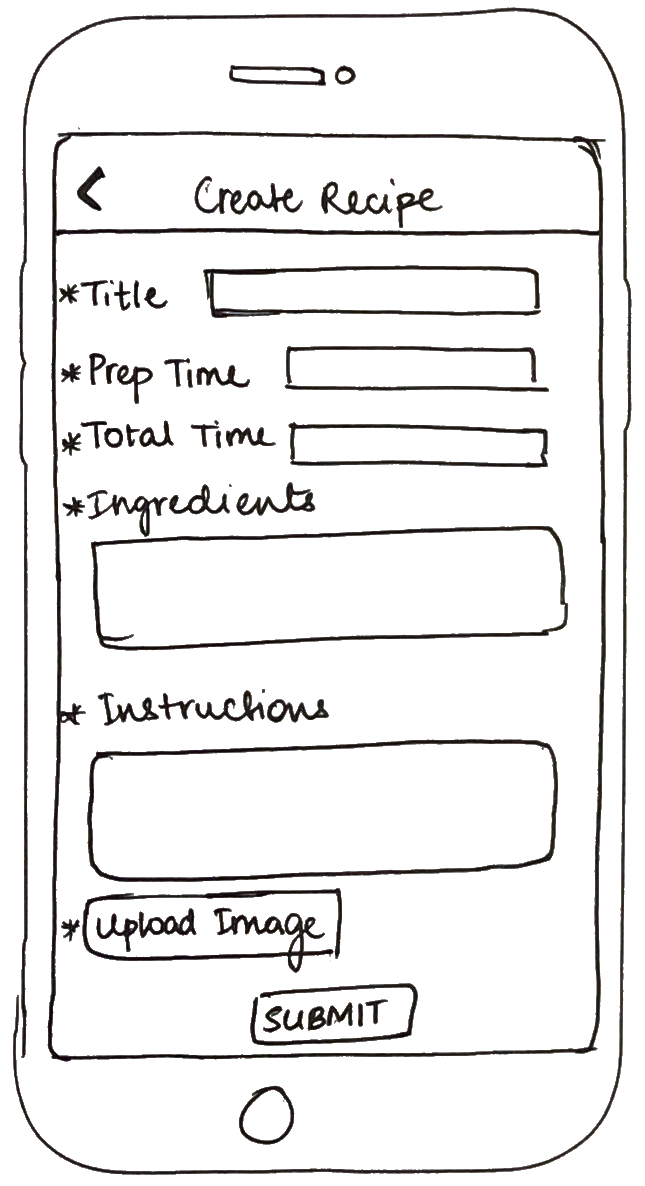 Create Recipe
*Title
*Prep Time
*Total Time
*Ingredients
* Instructions
*Upload Image
SUBMIT